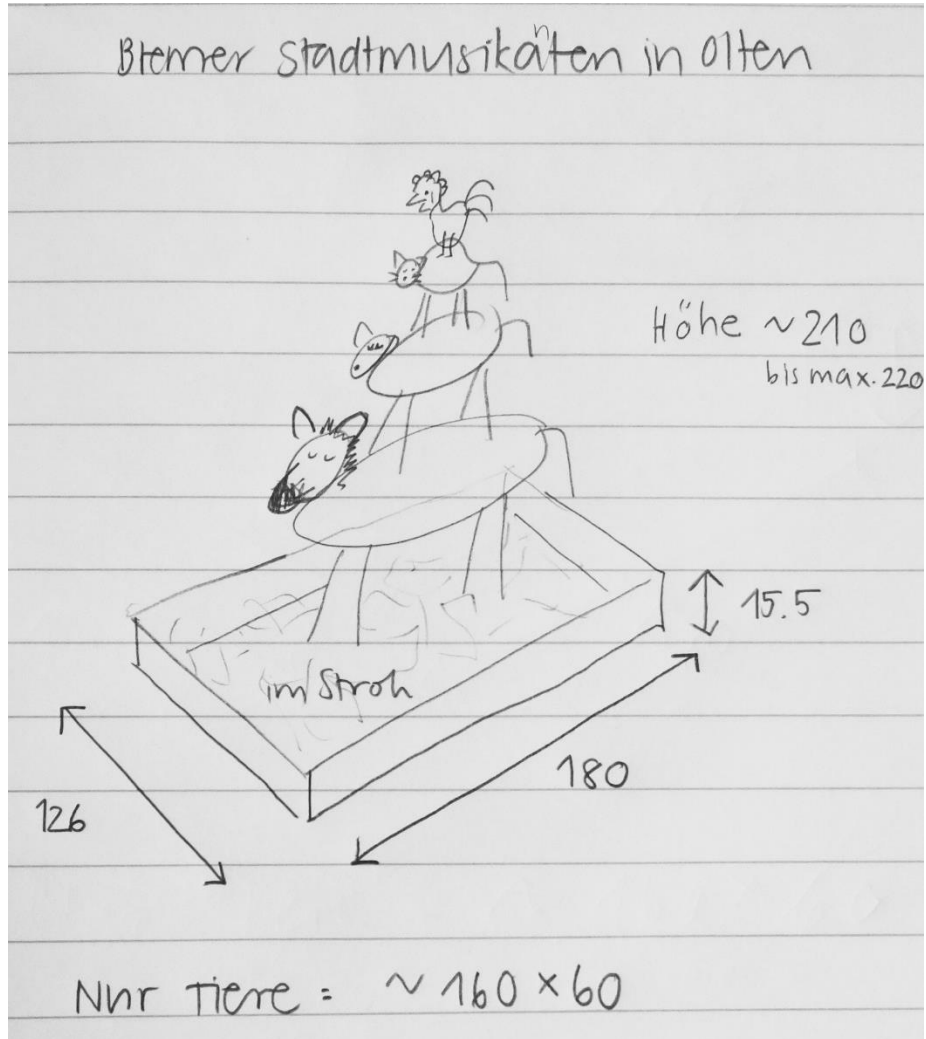 Bremer Stadtmusikänten in Olten
Höhe ~210
bis max. 220
15.5
im Stroh
180
126
Nur Tiere = ~160 x 60